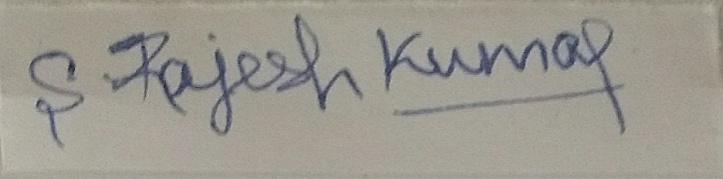 S. Rajesh Kumar